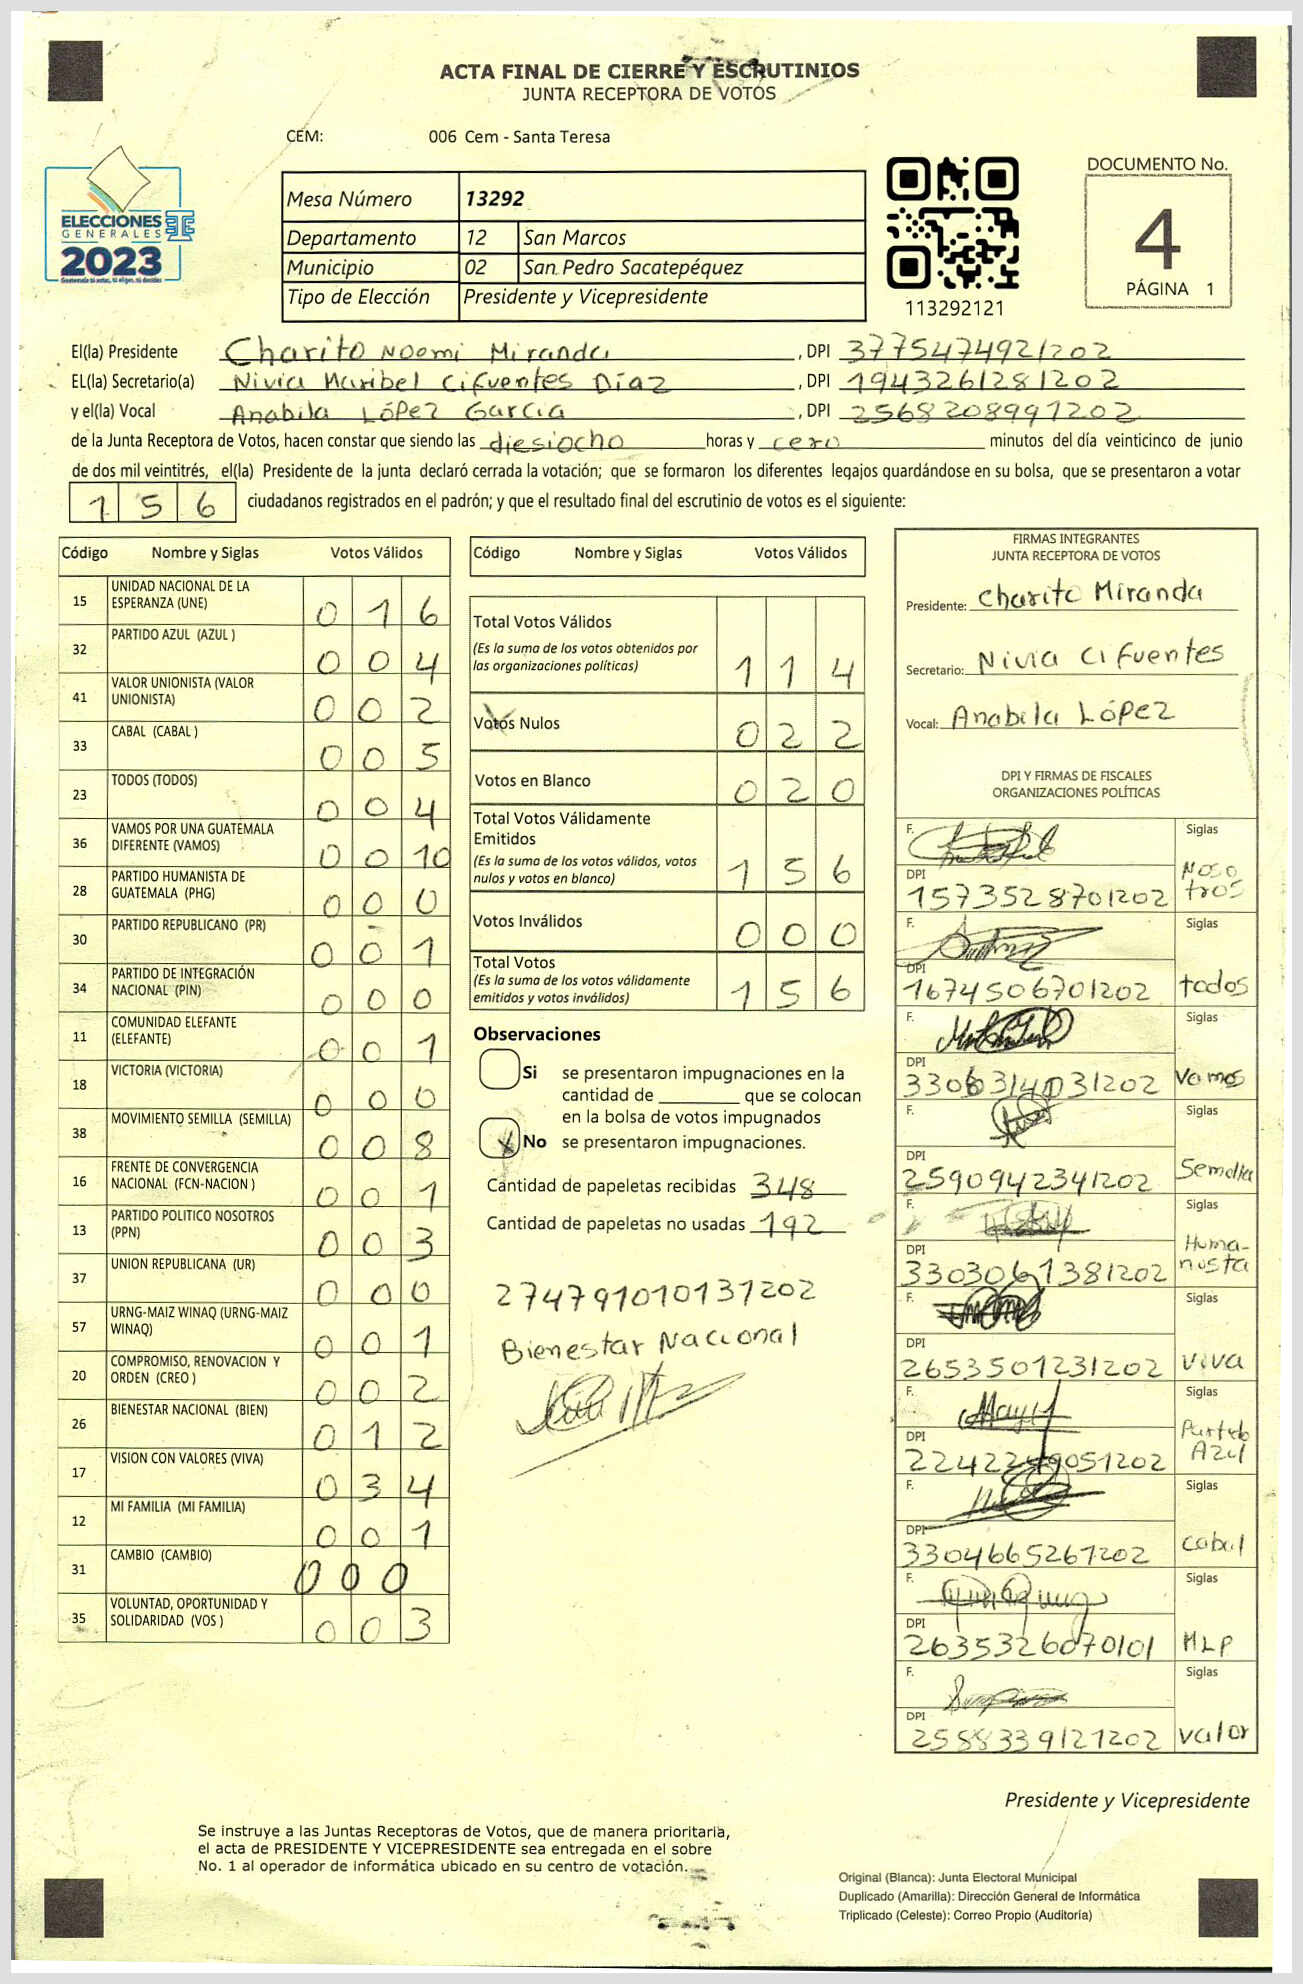 ACTA FINAL DE CIERRE Y ESCRUTINIOS
JUNTA RECEPTORA DE VOTOS
CEM: 006 Cem - Santa Teresa
ELECCIONES
GENERALES
2023
Mesa Número 13292
Departamento 12 San Marcos
Municipio 02 San Pedro Sacatepéquez
Tipo de Elección Presidente y Vicepresidente
113292121
DOCUMENTO No.
4
PÁGINA 1
El(la) Presidente Charito Noemi Miranda, DPI 3775474921202
EL(la) Secretario(a) Nivia Maribel Cifuentes Díaz, DPI 1943261281202
y el(la) Vocal Anabila López García, DPI 2568208991202
de la Junta Receptora de Votos, hacen constar que siendo las diesiocho horas y cero minutos del día veinticinco de junio
de dos mil veintitrés, el(la) Presidente de la junta declaró cerrada la votación; que se formaron los diferentes legajos guardándose en su bolsa, que se presentaron a votar
156 ciudadanos registrados en el padrón; y que el resultado final del escrutinio de votos es el siguiente:
Código Nombre y Siglas Votos Válidos
15 UNIDAD NACIONAL DE LA ESPERANZA (UNE) 0 1 6
32 PARTIDO AZUL (AZUL ) 0 0 4
41 VALOR UNIONISTA (VALOR UNIONISTA) 0 0 2
33 CABAL (CABAL ) 0 0 5
23 TODOS (TODOS) 0 0 4
36 VAMOS POR UNA GUATEMALA DIFERENTE (VAMOS) 0 0 10
28 PARTIDO HUMANISTA DE GUATEMALA (PHG) 0 0 0
30 PARTIDO REPUBLICANO (PR) 0 0 1
34 PARTIDO DE INTEGRACIÓN NACIONAL (PIN) 0 0 0
11 COMUNIDAD ELEFANTE (ELEFANTE) 0 0 1
18 VICTORIA (VICTORIA) 0 0 0
38 MOVIMIENTO SEMILLA (SEMILLA) 0 0 8
16 FRENTE DE CONVERGENCIA NACIONAL (FCN-NACION ) 0 0 1
13 PARTIDO POLITICO NOSOTROS (PPN) 0 0 3
37 UNION REPUBLICANA (UR) 0 0 0
57 URNG-MAIZ WINAQ (URNG-MAIZ WINAQ) 0 0 1
20 COMPROMISO, RENOVACION Y ORDEN (CREO ) 0 0 2
26 BIENESTAR NACIONAL (BIEN) 0 1 2
17 VISION CON VALORES (VIVA) 0 3 4
12 MI FAMILIA (MI FAMILIA) 0 0 1
31 CAMBIO (CAMBIO) 0 0 0
35 VOLUNTAD, OPORTUNIDAD Y SOLIDARIDAD (VOS ) 0 0 3
Código Nombre y Siglas Votos Válidos
Total Votos Válidos 1 1 4
(Es la suma de los votos obtenidos por
las organizaciones políticas)
Votos Nulos 0 2 2
Votos en Blanco 0 2 0
Total Votos Válidamente
Emitidos 1 5 6
(Es la suma de los votos válidos, votos
nulos y votos en blanco)
Votos Inválidos 0 0 0
Total Votos 1 5 6
(Es la suma de los votos válidamente
emitidos y votos inválidos)
Observaciones
Si se presentaron impugnaciones en la
cantidad de ________ que se colocan
en la bolsa de votos impugnados
X No se presentaron impugnaciones.
Cantidad de papeletas recibidas 348
Cantidad de papeletas no usadas 192
274791010131202
Bienestar Nacional
FIRMAS INTEGRANTES
JUNTA RECEPTORA DE VOTOS
Presidente: Charito Miranda
Secretario: Nivia Cifuentes
Vocal: Anabila López
DPI Y FIRMAS DE FISCALES
ORGANIZACIONES POLÍTICAS
F. Siglas
DPI 1573528701202 Nosotros
F. Siglas
DPI 1674506701202 todos
F. Siglas
DPI 3306314031202 Vamos
F. Siglas
DPI 2590942341202 Semilla
F. Siglas
DPI 3303061381202 Humanista
F. Siglas
DPI 2653501231202 viva
F. Siglas
DPI 2242249051202 Partido Azul
F. Siglas
DPI 3304665261202 cabal
F. Siglas
DPI 2635326070101 MLP
F. Siglas
DPI 2588339121202 valor
Presidente y Vicepresidente
Se instruye a las Juntas Receptoras de Votos, que de manera prioritaria,
el acta de PRESIDENTE Y VICEPRESIDENTE sea entregada en el sobre
No. 1 al operador de informática ubicado en su centro de votación.
Original (Blanca): Junta Electoral Municipal
Duplicado (Amarilla): Dirección General de Informática
Triplicado (Celeste): Correo Propio (Auditoría)